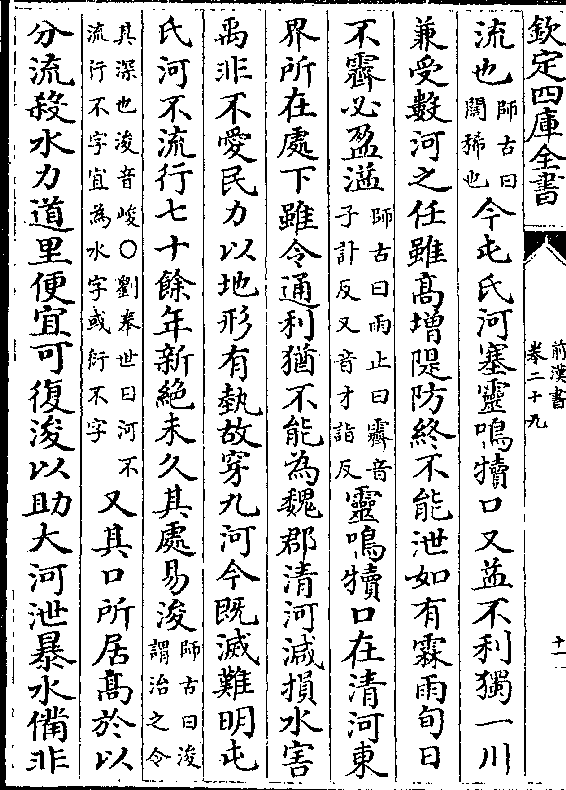 欽定四庫全書
前漢書
卷二十九
十一
流也師古曰闊稀也今屯氏河塞靈鳴犢口又益不利獨一川
兼受數河之任雖高增隄防終不能泄如有霖雨旬日
不霽必盈溢師古曰雨止曰霽音子計反又音才詣反靈鳴犢口在清河東
界所在處下雖令通利猶不能為魏郡清河減損水害
禹非不愛民力以地形有埶故穿九河今既滅難明屯
氏河不流行七十餘年新絶未久其處易浚師古曰浚謂治之令
其深也浚音峻○劉奉世曰河不流行不字宜為水字或衍不字又其口所居高於以
分流殺水力道里便宜可復浚以助大河泄暴水備非